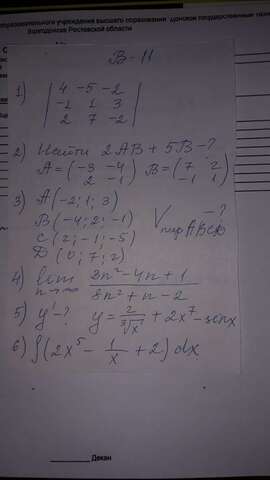 образовательного учреждения высшего образования "Донской государственный
Волгодонске Ростовской области
В-11
1) | 4 -5 -2 |
| -2 1 3 |
| 2 7 -2 |
2) Найти 2АВ + 5В - ?
А = (-3 -4) В = (7 2)
(2 -1) (-1 1)
3) А(-2; 1; 3)
В(-4; 2; -1)
С(2; -1; -5)
D(0; 7; 2)
V пир ABCD ?
4) lim n→∞ (3n² - 4n + 1)/(8n² + n - 2)
5) y' - ? y = 2/∛x + 2x⁷ - sin x
6) ∫(2x⁵ - 1/x + 2) dx
Декан